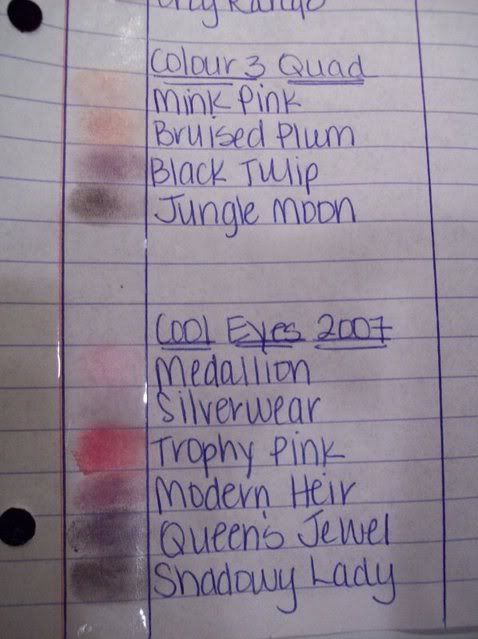 Colour 3 Quad
Mink Pink
Bruised Plum
Black Tulip
Jungle Moon
Cool Eyes 2007
Medallion
Silverwear
Trophy Pink
Modern Heir
Queen's Jewel
Shadowy Lady